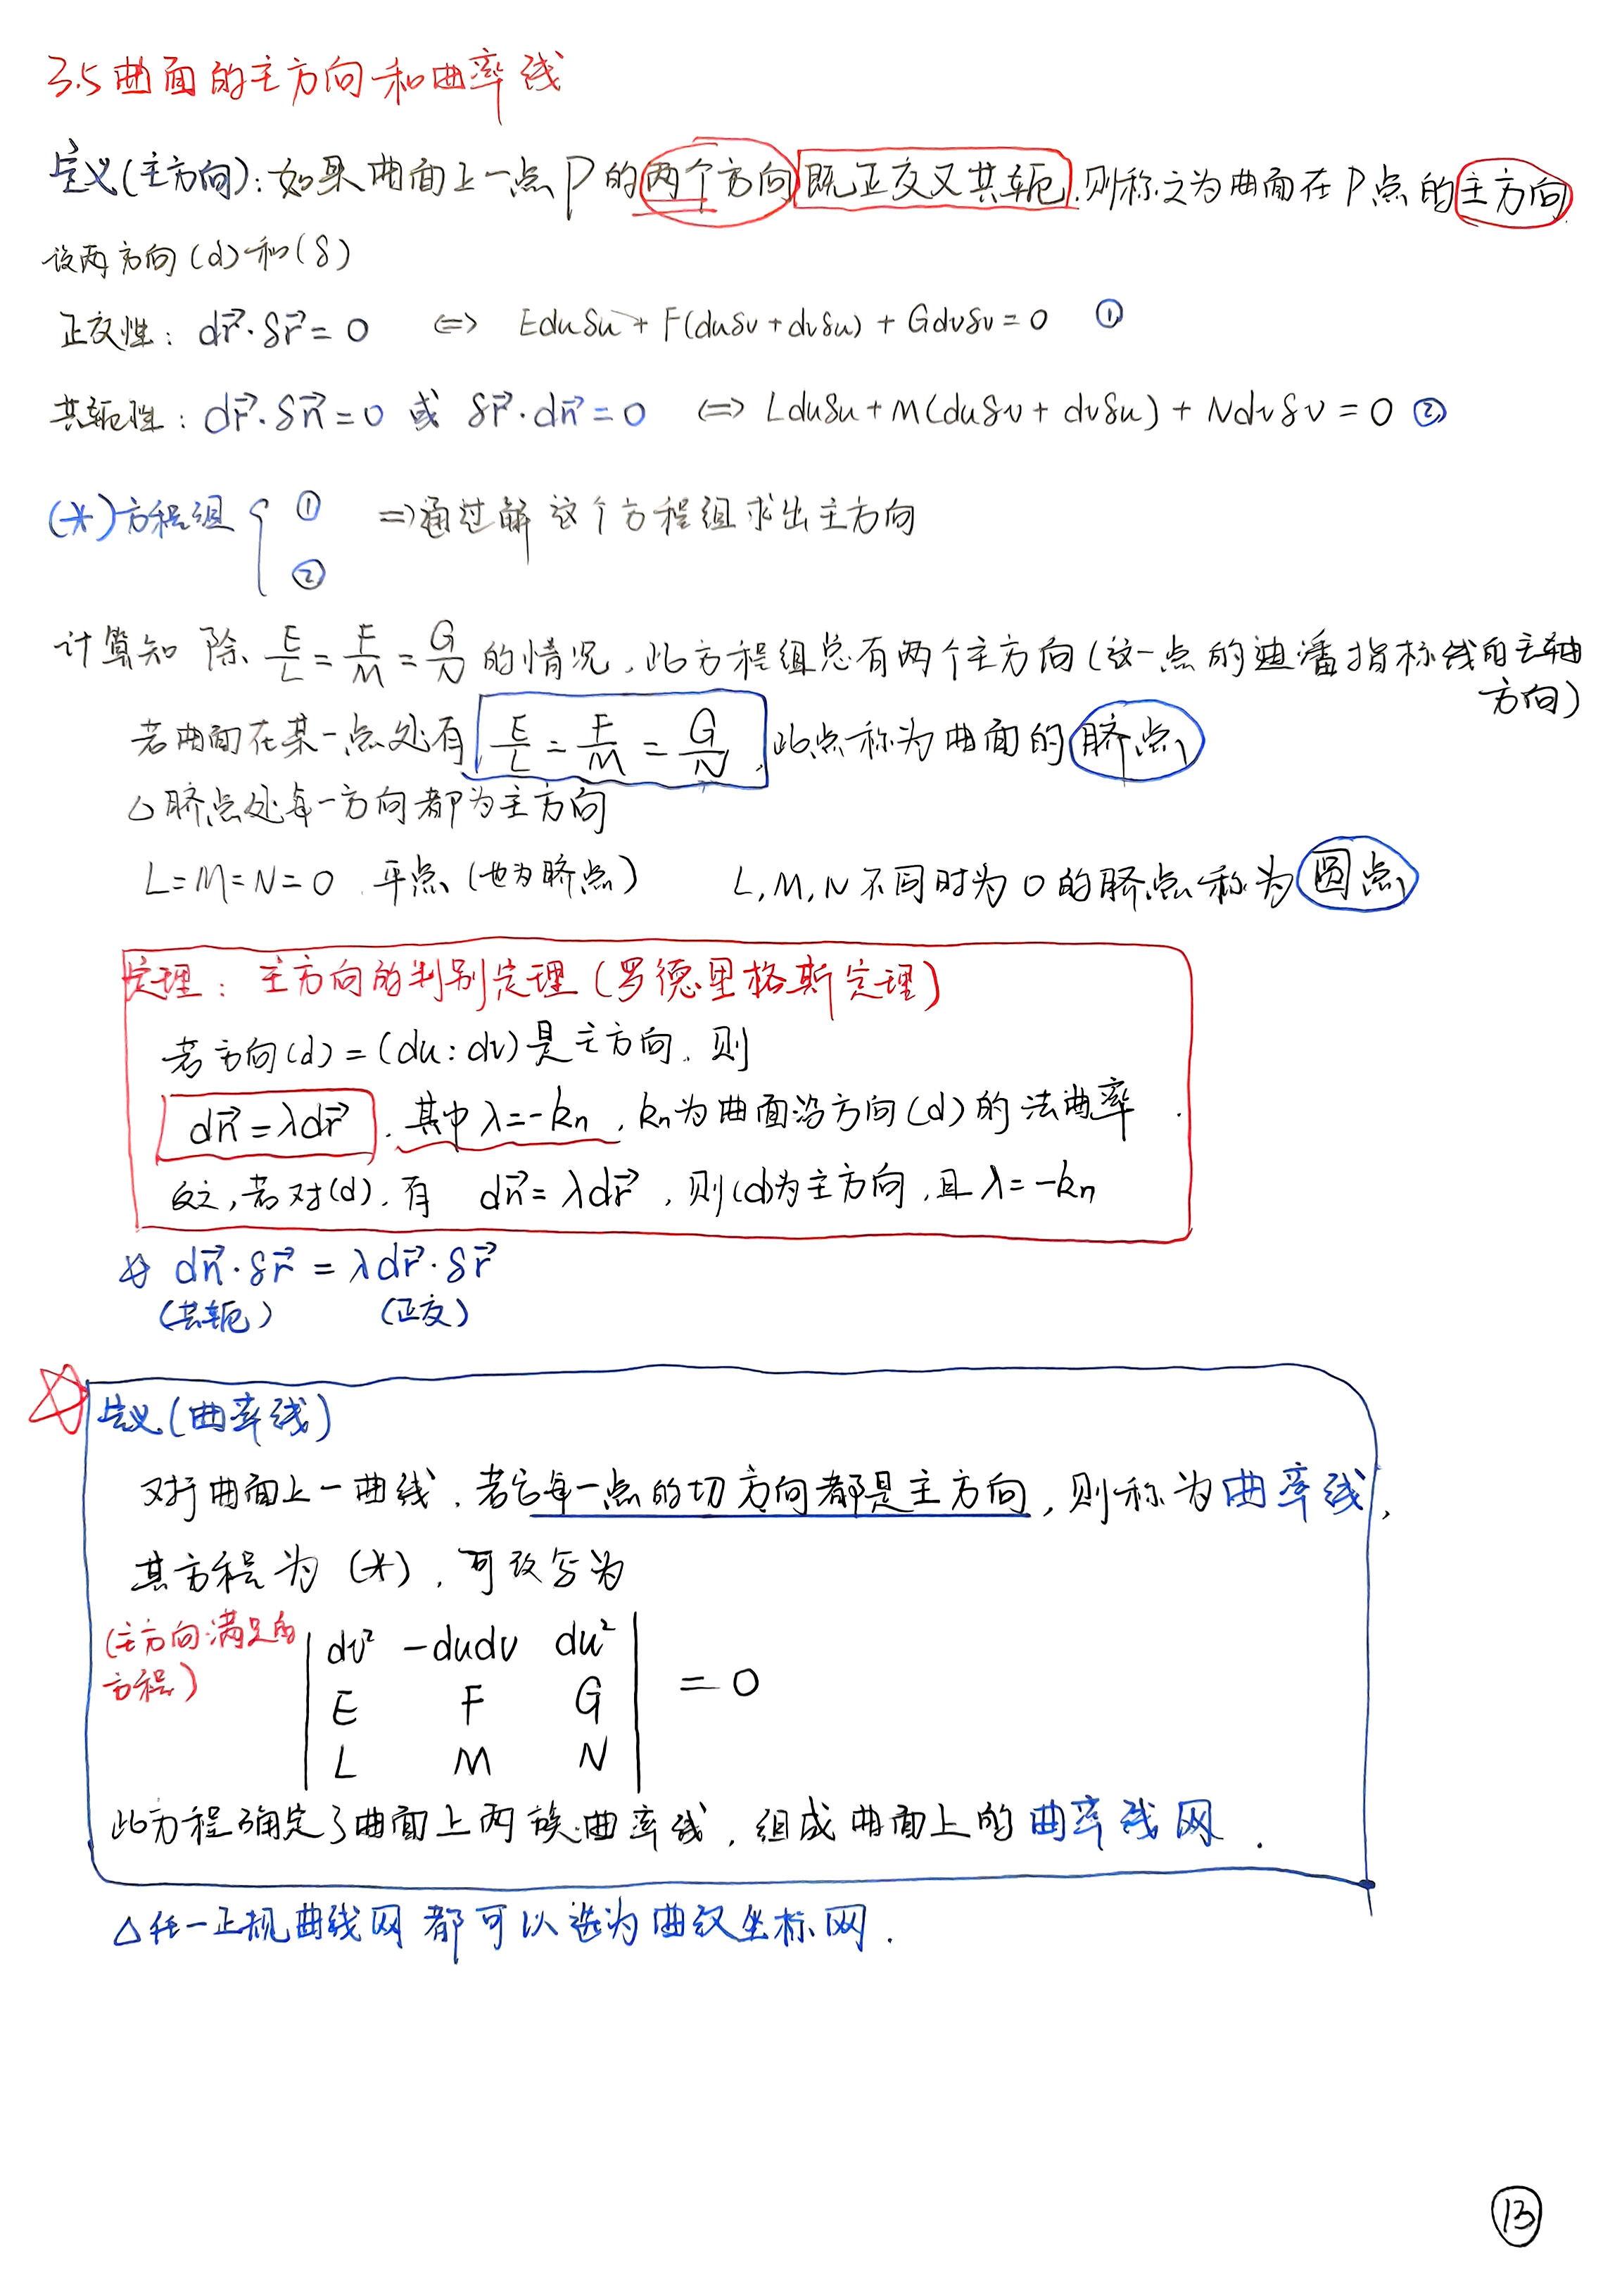 3.5 曲面的主方向和曲率线
定义(主方向):如果曲面上一点P的两个方向既正交又共轭.则称之为曲面在P点的主方向.
设两方向(d)和(δ)
正交性: dr⃗·δr⃗=0 ⟺ Eduδu+F(duδv+dvδu)+Gdvδv=0 ①
共轭性: dr⃗·δn⃗=0 或 δr⃗·dn⃗=0 ⟺ Lduδu+M(duδv+dvδu)+Ndvδv=0 ②
(*)方程组 { ① ⇒通过解这个方程组求出主方向
②
计算知 除 E/L=F/M=G/N 的情况,此方程组总有两个主方向(这一点的迪潘指标线的主轴
方向)
若曲面在某一点处有 E/L=F/M=G/N,此点称为曲面的脐点
△脐点处每一方向都为主方向
L=M=N=0.平点(也为脐点) L,M,N不同时为0的脐点称为圆点
定理: 主方向的判别定理(罗德里格斯定理)
若方向(d)=(du:dv)是主方向.则
dn⃗=λdr⃗.其中λ=-kn,kn为曲面沿方向(d)的法曲率.
反之,若对(d).有 dn⃗=λdr⃗,则(d)为主方向,且λ=-kn
☆ dn⃗·δr⃗=λdr⃗·δr⃗
(共轭) (正交)
☆ 定义(曲率线)
对于曲面上一曲线.若它每一点的切方向都是主方向,则称为曲率线,
其方程为(*),可改写为
(主方向满足的
方程)
| dv² -dudv du² |
| E F G | =0
| L M N |
此方程确定了曲面上两族曲率线,组成曲面上的曲率线网.
△任一正规曲线网都可以选为曲纹坐标网.
13